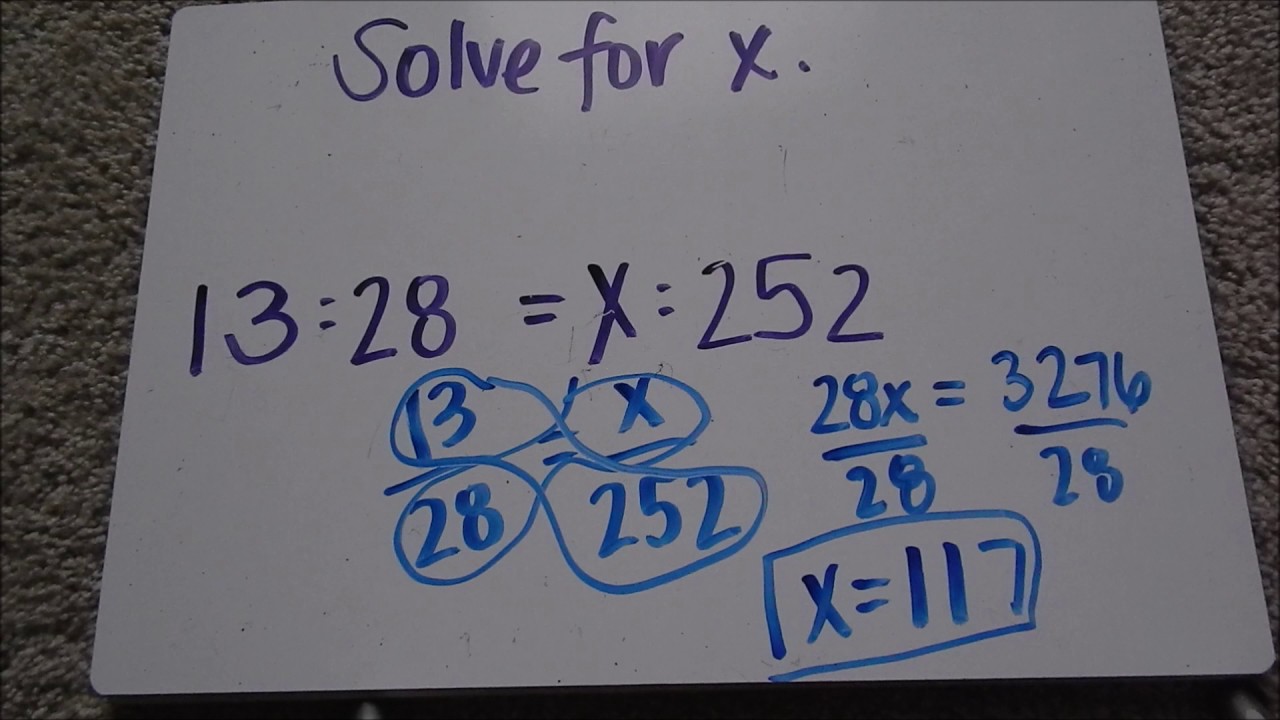 Solve for x.
13:28 = x:252
13/28 = x/252
28x/28 = 3276/28
x=117